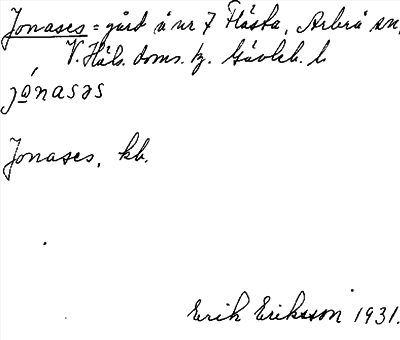 Jonases = gård å nr 7 Flästa, Arbrå sn,
V. Häls. doms. tg. Gävleb. l.
jó̠nasəs
Jonases, kb.
Erik Eriksson 1931.